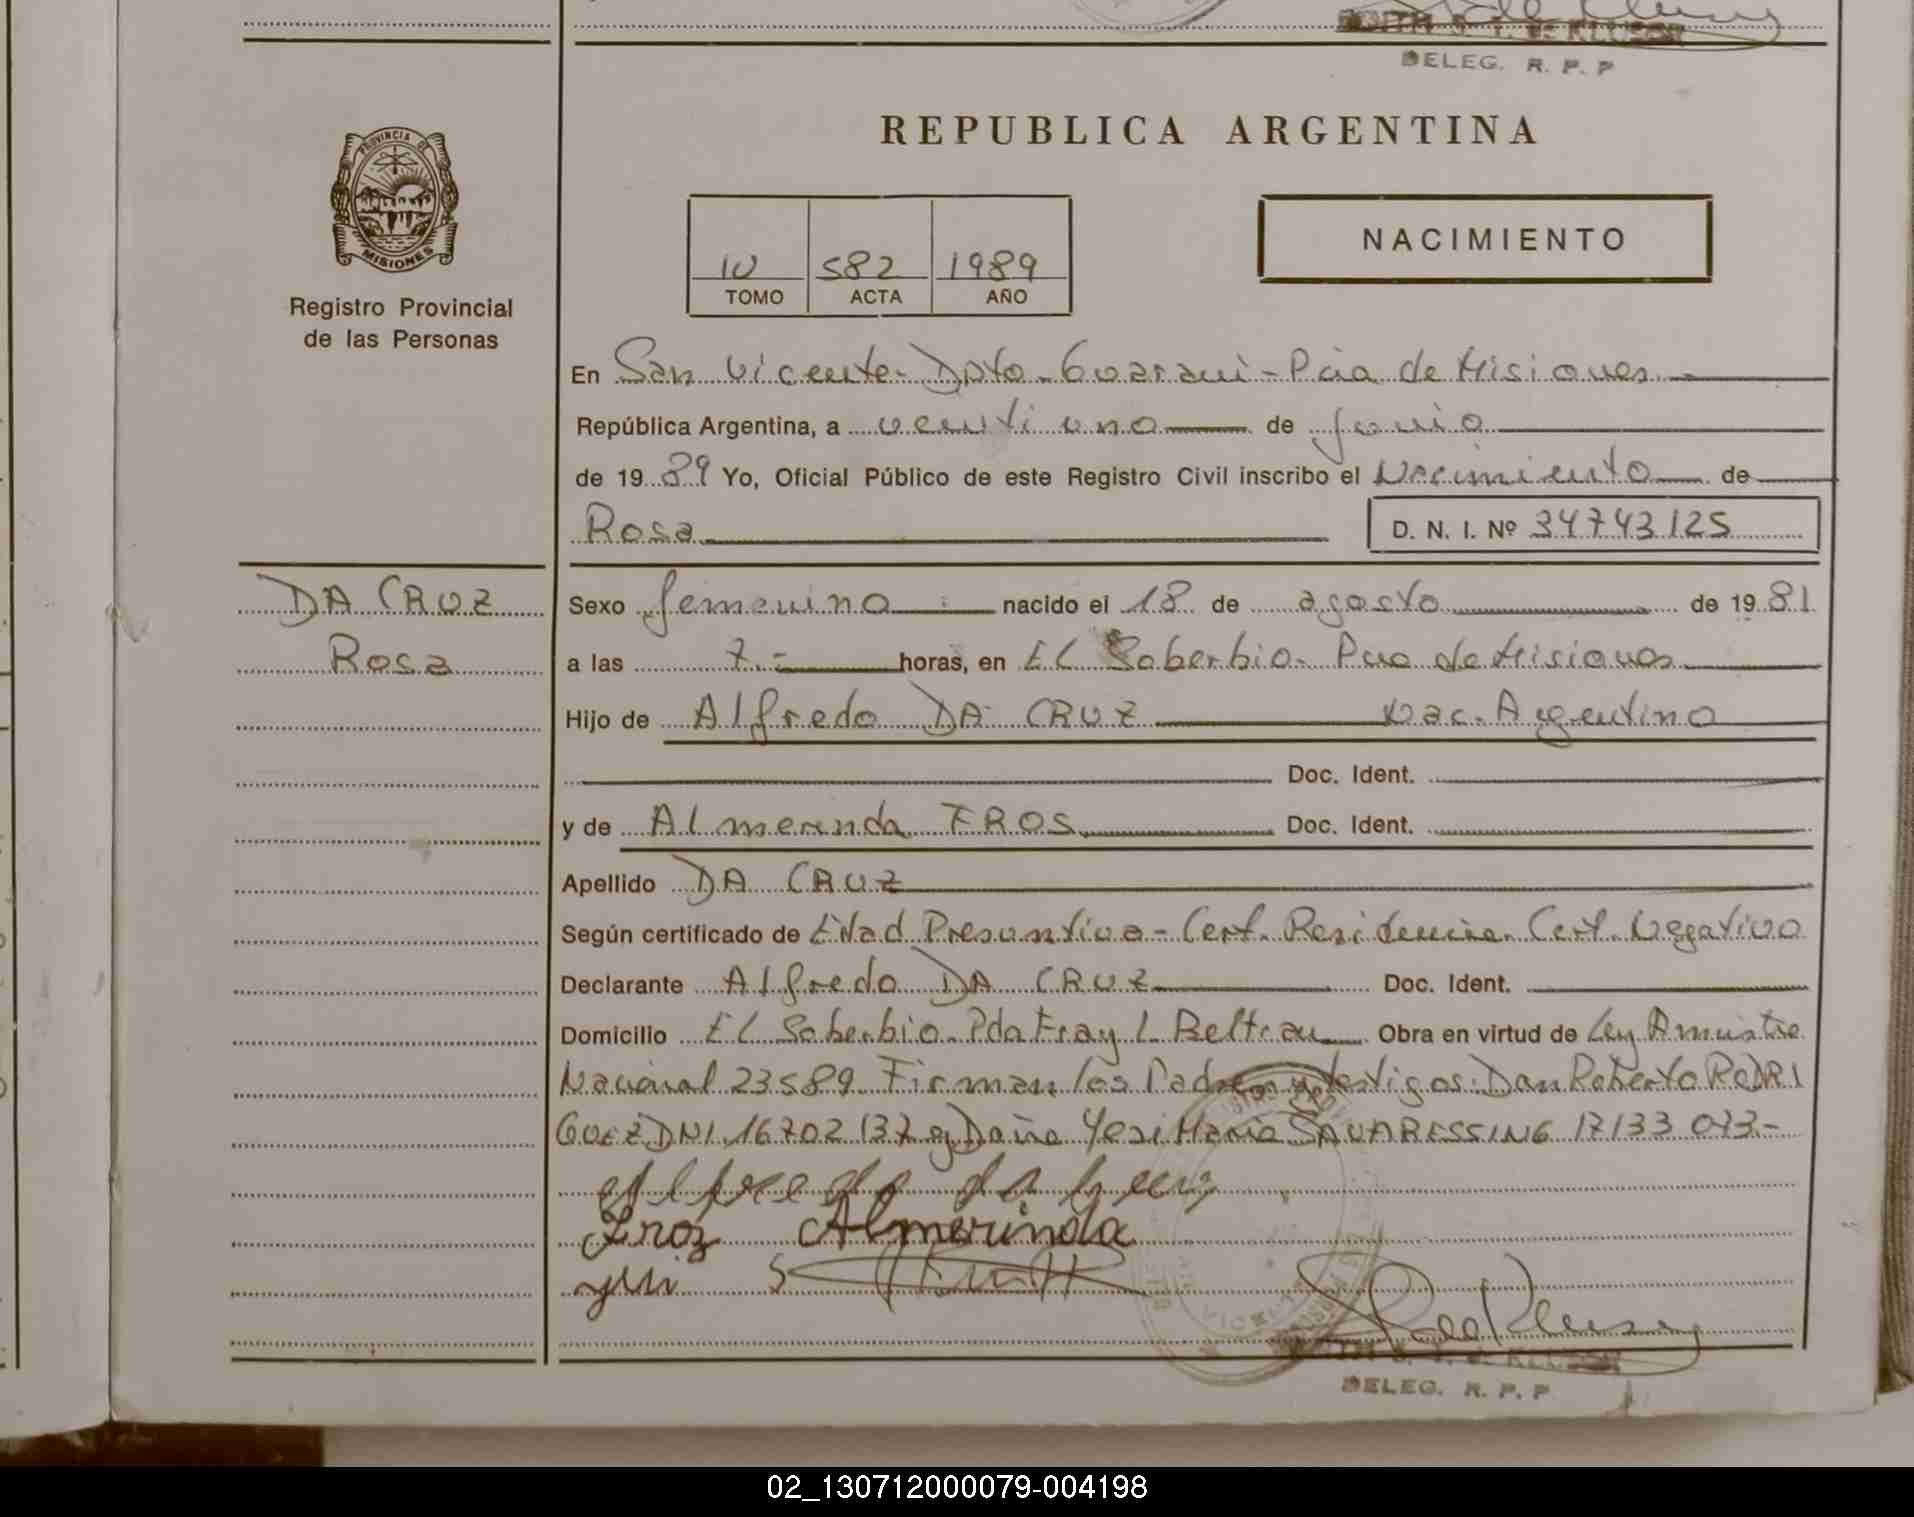 DELEG. R. P. P
REPUBLICA ARGENTINA
PROVINCIA DE
MISIONES
Registro Provincial
de las Personas
IV 582 1989
TOMO ACTA AÑO
NACIMIENTO
En San Vicente - Dpto. Guarani - Pcia de Misiones. -
República Argentina, a ventiuno de junio
de 1989 Yo, Oficial Público de este Registro Civil inscribo el Nacimiento de
Rosa D. N. I. Nº 34743125
DA CRUZ
Rosa
Sexo femenino nacido el 18 de agosto de 1981
a las 7.- horas, en EL Soberbio - Pcia de Misiones
Hijo de Alfredo DA CRUZ Nac. Argentino
Doc. Ident.
y de Almerinda FROS Doc. Ident.
Apellido DA CRUZ
Según certificado de Edad Presuntiva - Cert. Residencia. Cert. Negativo
Declarante Alfredo DA CRUZ Doc. Ident.
Domicilio EL Soberbio. Pda Fray L. Beltran Obra en virtud de Ley Amnistia
Nacional 23589. Firman los Padres y testigos: Dan Roberto RODRI
GUEZ DNI. 16702 137 y Doña Yesi Maria SAVARESSING 17133 073.-
Alfredo da Cruz
Froz Almerinda
DELEG. R. P. P
02_130712000079-004198